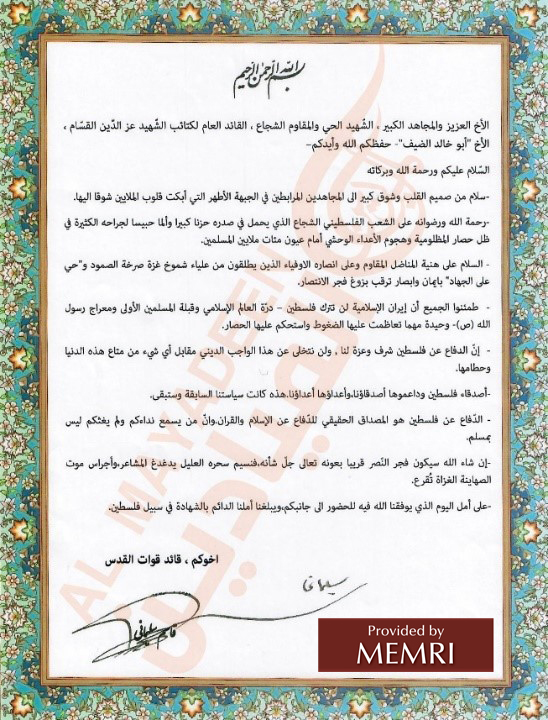 بسم الله الرحمن الرحيم
الأخ العزيز والمجاهد الكبير ، الشّهيد الحي والمقاوم الشجاع ، القائد العام لكتائب الشّهيد عز الدّين القسّام ،
الأخ "أبو خالد الضيف"- حفظكم الله وأيدكم–
السّلام عليكم ورحمة الله وبركاته
-سلام من صميم القلب وشوق كبير الى المجاهدين المرابطين في الجبهة الأطهر التي أبكت قلوب الملايين شوقا اليها.
-رحمة الله ورضوانه على الشعب الفلسطيني الشجاع الذي يحمل في صدره حزنا كبيرا وألما حبيسا لجراحه الكثيرة في
ظل حصار المظلومية وهجوم الأعداء الوحشي أمام عيون مئات ملايين المسلمين.
- السلام على هنية المناضل المقاوم وعلى انصاره الاوفياء الذين يطلقون من علياء شموخ غزة صرخة الصمود و"حي
على الجهاد" بايمان وابصار ترقب بزوغ فجر الانتصار.
- طمئنوا الجميع أن إيران الإسلامية لن تترك فلسطين – درّة العالم الإسلامي وقبلة المسلمين الأولى ومعراج رسول
الله (ص)- وحيدة مهما تعاظمت عليها الضغوط واستحكم عليها الحصار.
- إنّ الدفاع عن فلسطين شرف وعزة لنا , ولن نتخلى عن هذا الواجب الديني مقابل أي شيء من متاع هذه الدنيا
وحطامها.
-أصدقاء فلسطين وداعموها أصدقاؤنا،وأعداؤها أعداؤنا.هذه كانت سياستنا السابقة وستبقى.
- الدّفاع عن فلسطين هو المصداق الحقيقي للدّفاع عن الإسلام والقران.وانّ من يسمع نداءكم ولم يغثكم ليس
بمسلم.
-إن شاء الله سيكون فجر النّصر قريبا بعونه تعالى جلّ شأنه،فنسيم سحره العليل يدغدغ المشاعر،وأجراس موت
الصهاينة الغزاة تُقرع.
-على أمل اليوم الذي يوفقنا الله فيه للحضور الى جانبكم،ويبلغنا أملنا الدائم بالشهادة في سبيل فلسطين.
اخوكم ، قائد قوات القدس
سليماني
قاسم سليماني
AL MAYADEEN
الميادين
Provided by
MEMRI